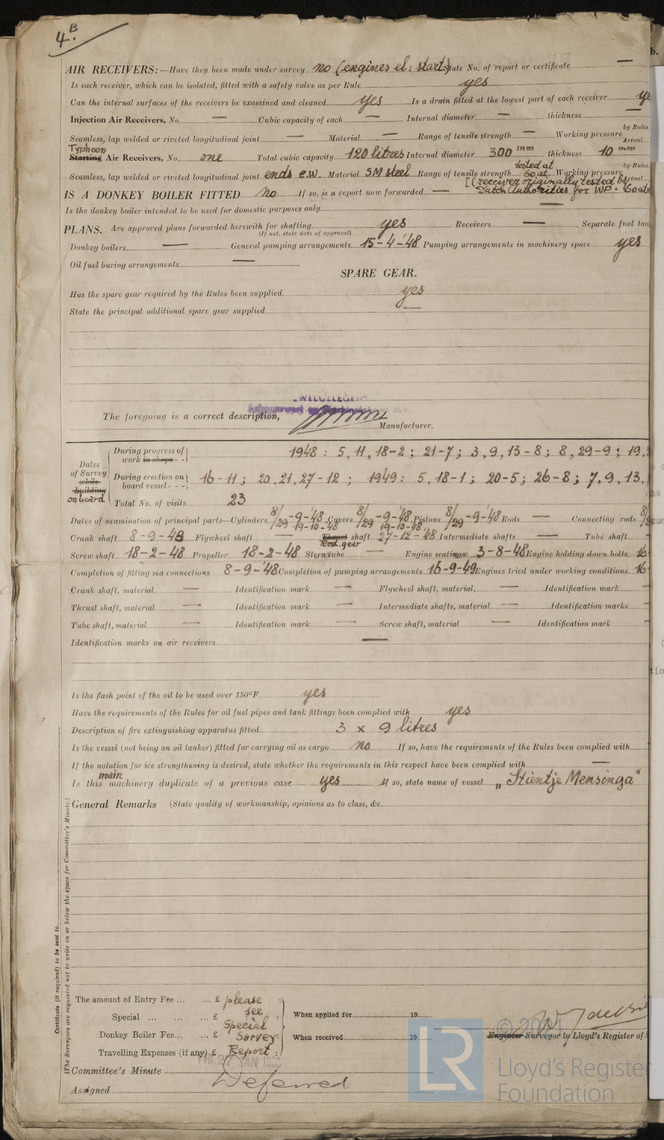 4.B
AIR RECEIVERS:—Have they been made under survey no (engines el: start) State No. of report or certificate —
Is each receiver, which can be isolated, fitted with a safety valve as per Rule yes
Can the internal surfaces of the receivers be examined and cleaned yes Is a drain fitted at the lowest part of each receiver
Injection Air Receivers, No. — Cubic capacity of each — Internal diameter — thickness
Seamless, lap welded or riveted longitudinal joint — Material — Range of tensile strength — Working pressure by Rules Actual
Typhoon
Starting Air Receivers, No. one Total cubic capacity 120 litres Internal diameter 300 mm thickness 10 mm
Seamless, lap welded or riveted longitudinal joint ends e.w. Material SM steel Range of tensile strength tested at 60 at. Working pressure by Rules Actual
IS A DONKEY BOILER FITTED no If so, is a report now forwarded — [(receiver originally tested by Dutch Authorities for WP =
Is the donkey boiler intended to be used for domestic purposes only —
PLANS. Are approved plans forwarded herewith for shafting yes Receivers — Separate fuel
(If not, state date of approval)
Donkey boilers — General pumping arrangements 15-4-'48 Pumping arrangements in machinery space yes
Oil fuel buring arrangements —
SPARE GEAR.
Has the spare gear required by the Rules been supplied yes
State the principal additional spare gear supplied —
The foregoing is a correct description,
Manufacturer.
Dates of Survey while building on board
During progress of work in shops - - 1948: 5, 11, 18-2; 21-7; 3, 9, 13-8; 8, 29-9; 19,
During erection on board vessel - - - 16-11; 20, 21, 27-12; 1949: 5, 18-1; 20-5; 26-8; 7, 9, 13,
Total No. of visits 23
Dates of examination of principal parts—Cylinders 8/29-9-'48 19-10-48 Covers 8/29-9-'48 19-10-'48 Pistons 8/29-9-'48 Rods — Connecting rods
Crank shaft 8-9-48 Flywheel shaft — Thrust shaft red. gear 27-12-48 Intermediate shafts — Tube shaft
Screw shaft 18-2-48 Propeller 18-2-48 Sterntube — Engine seatings 3-8-48 Engine holding down bolts 16-
Completion of fitting sea connections 8-9-'48 Completion of pumping arrangements 16-9-49 Engines tried under working conditions 16-
Crank shaft, material — Identification mark — Flywheel shaft, material — Identification mark
Thrust shaft, material — Identification mark — Intermediate shafts, material — Identification marks
Tube shaft, material — Identification mark — Screw shaft, material — Identification mark
Identification marks on air receivers —
Is the flash point of the oil to be used over 150°F yes
Have the requirements of the Rules for oil fuel pipes and tank fittings been complied with yes
Description of fire extinguishing apparatus fitted 3 x 9 litres
Is the vessel (not being an oil tanker) fitted for carrying oil as cargo no If so, have the requirements of the Rules been complied with
If the notation for ice strengthening is desired, state whether the requirements in this respect have been complied with —
main
Is this machinery duplicate of a previous case yes If so, state name of vessel „Stientje Mensinga"
General Remarks (State quality of workmanship, opinions as to class, &c.
Certificate (if required) to be sent to
(The Surveyors are requested not to write on or below the space for Committee's Minute.)
The amount of Entry Fee ... ... £ please
Special ... ... £ see Special
Donkey Boiler Fee... ... £ Survey
Travelling Expenses (if any) £ Report
When applied for 19
When received 19
Engineer Surveyor to Lloyd's Register of
Committee's Minute
Assigned Deferred
© 2021
LR
Lloyd's Register
Foundation